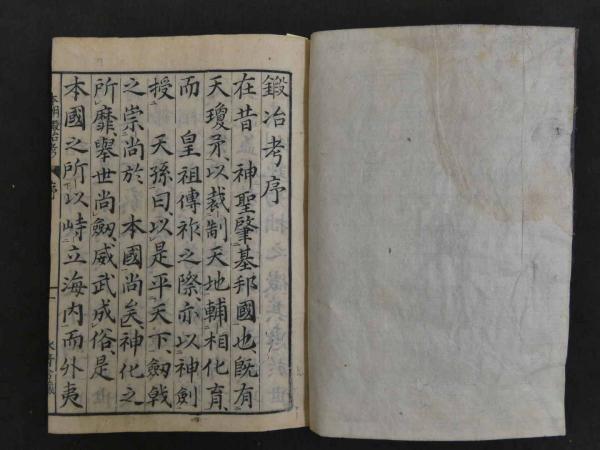 鍛冶考序
在昔 神聖肇基邦國也、既有
天瓊矛、以裁制天地、輔相化育、
而 皇祖傳祚之際、亦以神劍
授 天孫曰、以是平天下、劔戟
之崇尚於 本國尚矣、神化之
所靡、舉世尚劔、威武成俗、是
本國之所以峙立海内、而外夷
本朝鍛冶考 序